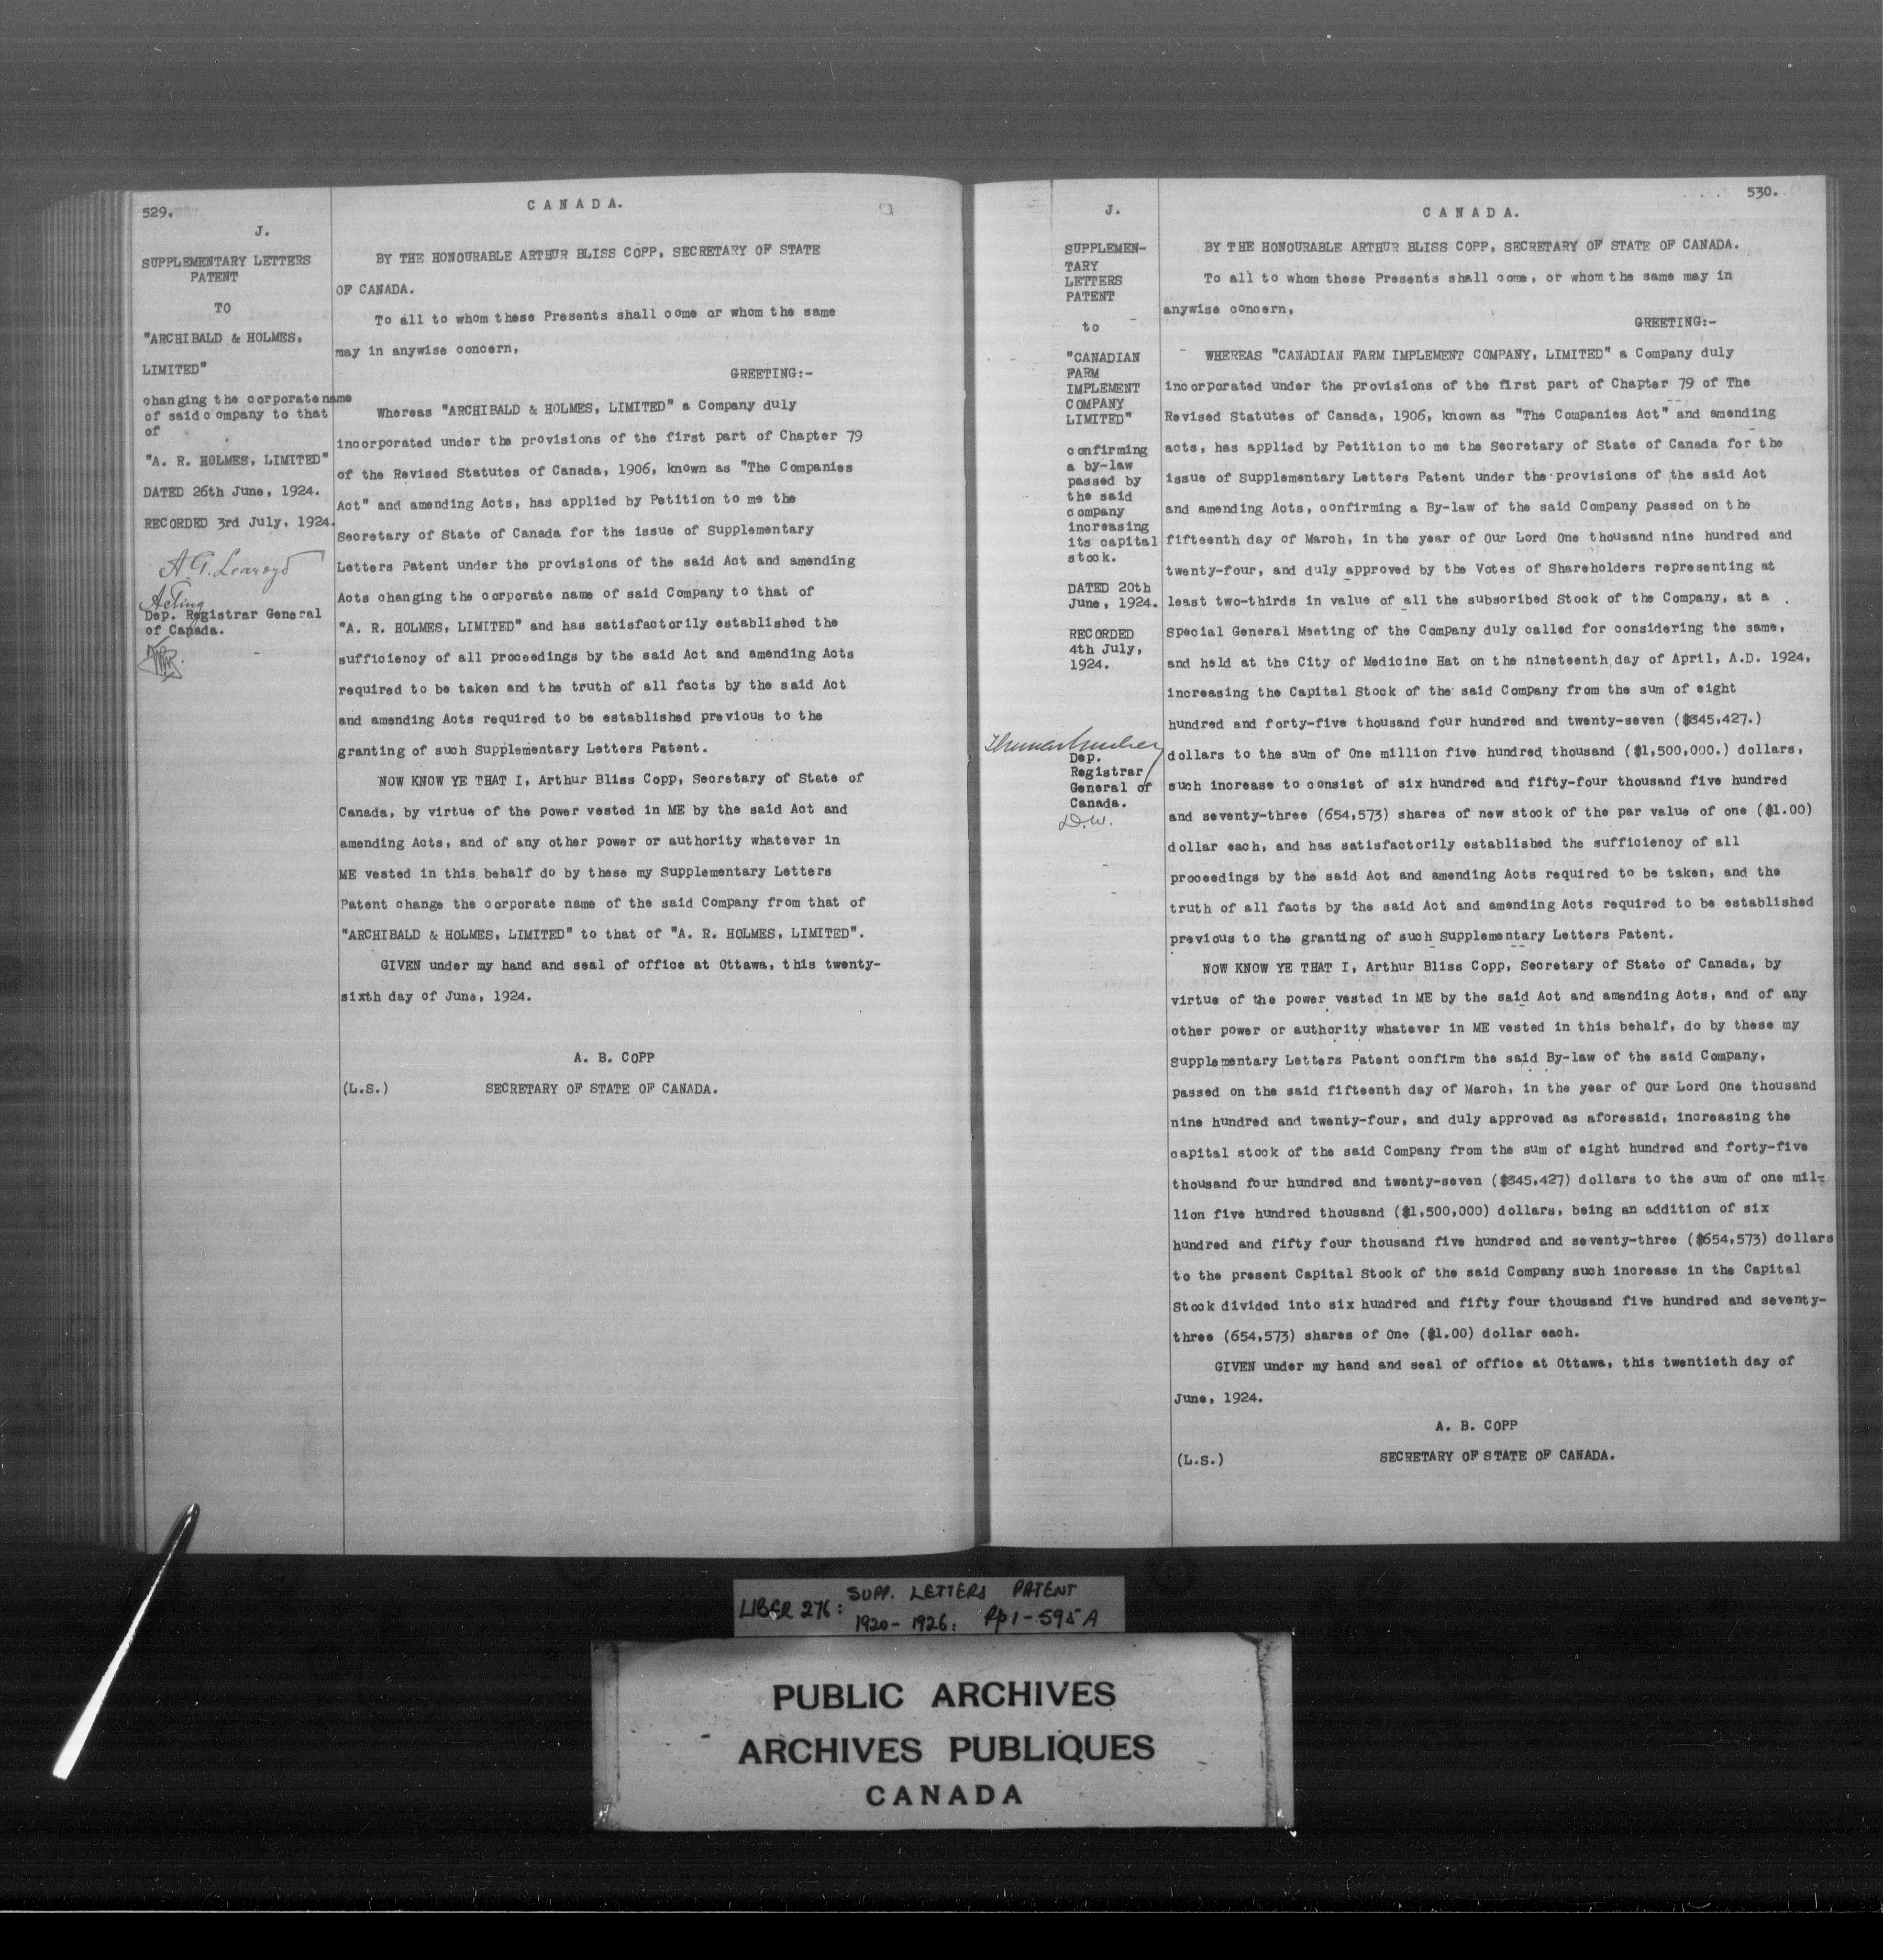 529.
J.
SUPPLEMENTARY LETTERS
PATENT
TO
"ARCHIBALD & HOLMES,
LIMITED"
changing the corporate name
of said company to that
of
"A. R. HOLMES, LIMITED"
DATED 26th June, 1924.
RECORDED 3rd July, 1924.
A. G. Learoyd
Acting
Dep. Registrar General
of Canada.
CANADA.
BY THE HONOURABLE ARTHUR BLISS COPP, SECRETARY OF STATE
OF CANADA.
To all to whom these Presents shall come or whom the same
may in anywise concern,
GREETING:-
Whereas "ARCHIBALD & HOLMES, LIMITED" a Company duly
incorporated under the provisions of the first part of Chapter 79
of the Revised Statutes of Canada, 1906, known as "The Companies
Act" and amending Acts, has applied by Petition to me the
Secretary of State of Canada for the issue of Supplementary
Letters Patent under the provisions of the said Act and amending
Acts changing the corporate name of said Company to that of
"A. R. HOLMES, LIMITED" and has satisfactorily established the
sufficiency of all proceedings by the said Act and amending Acts
required to be taken and the truth of all facts by the said Act
and amending Acts required to be established previous to the
granting of such Supplementary Letters Patent.
NOW KNOW YE THAT I, Arthur Bliss Copp, Secretary of State of
Canada, by virtue of the power vested in ME by the said Act and
amending Acts, and of any other power or authority whatever in
ME vested in this behalf do by these my Supplementary Letters
Patent change the corporate name of the said Company from that of
"ARCHIBALD & HOLMES, LIMITED" to that of "A. R. HOLMES, LIMITED".
GIVEN under my hand and seal of office at Ottawa, this twenty-
sixth day of June, 1924.
A. B. COPP
(L.S.) SECRETARY OF STATE OF CANADA.
530.
J.
SUPPLEMEN-
TARY
LETTERS
PATENT
to
"CANADIAN
FARM
IMPLEMENT
COMPANY
LIMITED"
confirming
a by-law
passed by
the said
company
increasing
its capital
stock.
DATED 20th
June, 1924.
RECORDED
4th July,
1924.
Dep.
Registrar
General of
Canada.
D.W.
CANADA.
BY THE HONOURABLE ARTHUR BLISS COPP, SECRETARY OF STATE OF CANADA.
To all to whom these Presents shall come, or whom the same may in
anywise concern,
GREETING:-
WHEREAS "CANADIAN FARM IMPLEMENT COMPANY, LIMITED" a Company duly
incorporated under the provisions of the first part of Chapter 79 of The
Revised Statutes of Canada, 1906, known as "The Companies Act" and amending
acts, has applied by Petition to me the Secretary of State of Canada for the
issue of Supplementary Letters Patent under the provisions of the said Act
and amending Acts, confirming a By-law of the said Company passed on the
fifteenth day of March, in the year of Our Lord One thousand nine hundred and
twenty-four, and duly approved by the Votes of Shareholders representing at
least two-thirds in value of all the subscribed Stock of the Company, at a
Special General Meeting of the Company duly called for considering the same,
and held at the City of Medicine Hat on the nineteenth day of April, A.D. 1924,
increasing the Capital Stock of the said Company from the sum of eight
hundred and forty-five thousand four hundred and twenty-seven ($845,427.)
dollars to the sum of One million five hundred thousand ($1,500,000.) dollars,
such increase to consist of six hundred and fifty-four thousand five hundred
and seventy-three (654,573) shares of new stock of the par value of one ($1.00)
dollar each, and has satisfactorily established the sufficiency of all
proceedings by the said Act and amending Acts required to be taken, and the
truth of all facts by the said Act and amending Acts required to be established
previous to the granting of such Supplementary Letters Patent.
NOW KNOW YE THAT I, Arthur Bliss Copp, Secretary of State of Canada, by
virtue of the power vested in ME by the said Act and amending Acts, and of any
other power or authority whatever in ME vested in this behalf, do by these my
Supplementary Letters Patent confirm the said By-law of the said Company,
passed on the said fifteenth day of March, in the year of Our Lord One thousand
nine hundred and twenty-four, and duly approved as aforesaid, increasing the
capital stock of the said Company from the sum of eight hundred and forty-five
thousand four hundred and twenty-seven ($845,427) dollars to the sum of one mil-
lion five hundred thousand ($1,500,000) dollars, being an addition of six
hundred and fifty four thousand five hundred and seventy-three ($654,573) dollars
to the present Capital Stock of the said Company such increase in the Capital
Stock divided into six hundred and fifty four thousand five hundred and seventy-
three (654,573) shares of One ($1.00) dollar each.
GIVEN under my hand and seal of office at Ottawa, this twentieth day of
June, 1924.
A. B. COPP
(L.S.) SECRETARY OF STATE OF CANADA.
LIBER 276: SUPP. LETTERS PATENT
1920-1926: Pp 1-595A
PUBLIC ARCHIVES
ARCHIVES PUBLIQUES
CANADA